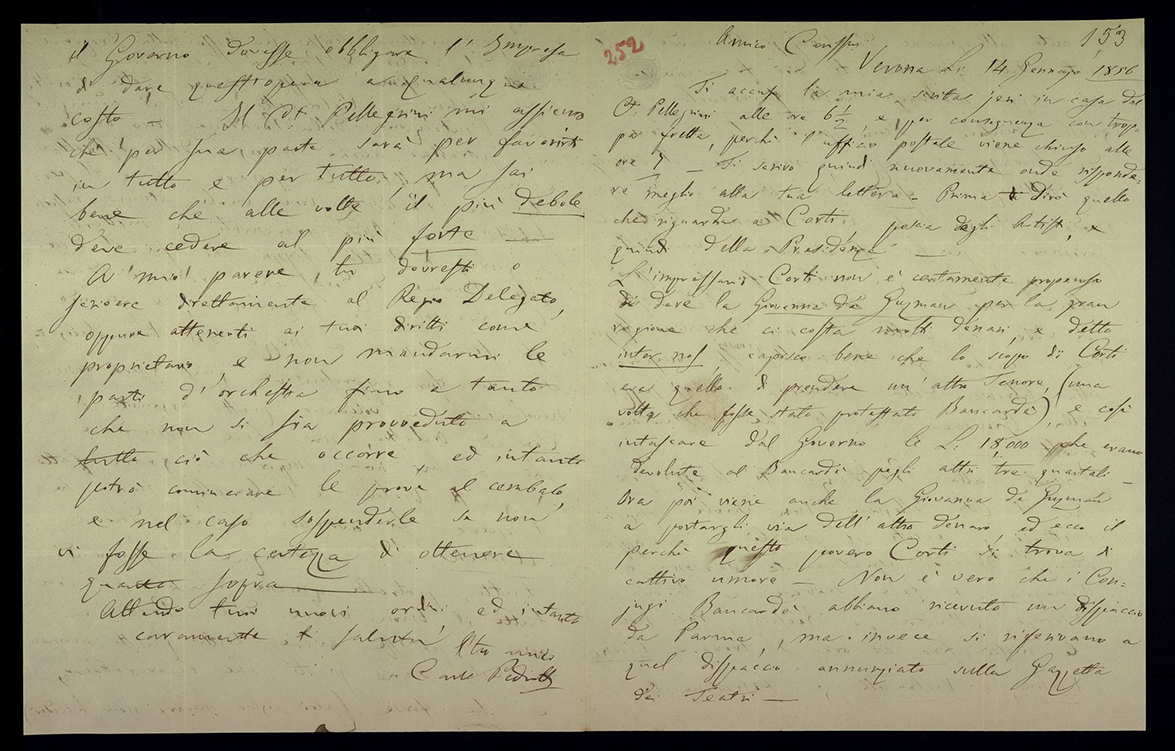 252
153
Amico Carissimo
Verona li 14 Gennajo 1856
Ti accuso la mia scritta jeri in casa del
Ct. Pellegrini alle ore 6½ e per conseguenza con trop=
pa fretta, perchè l'ufficio postale viene chiuso alle
ore 7 — Ti scrivo quindi nuovamente onde risponde=
re meglio alla tua lettera. Prima ti dirò quello
che riguarda a Corti, poscia degli Artisti, e
quindi della Presidenza —
L'impressario Corti non è certamente propenso
di dare la Giovanna de Guzman per la gran
ragione che ci costa molti denari, e detto
inter nos, capisco bene che lo scopo di Corti
era quello di prendere un'altro Tenore, (una
volta che fosse stato protestato Bancardè) e così
intascare dal Governo le L. 18,000 che erano
devolute al Bancardè pegli altri tre quartali
Ora poi viene anche la Giovanna de Guzman
a portargli via dell'altro denaro ed ecco il
perchè questo povero Corti si trova di
cattivo umore — Non è vero che i Con=
jugi Bancardè abbiano ricevuto un dispaccio
da Parma, ma invece si riferivano a
quel dispaccio annunziato sulla Gazzetta
dei Teatri —
il Governo dovesse obbligare l'Impresa
di dare quest'opera a qualunque
costo — Il Ct Pellegrini mi assicura
che per sua parte sarà per favorirti
in tutto e per tutto, ma sai
bene che alle volte il più debole
deve cedere al più forte —
A mio parere, tu dovresti o
scrivere direttamente al Regio Delegato,
oppure attenerti ai tuoi diritti come
proprietario, e non mandarmi le
parti d'orchestra fino a tanto
che non si sia provveduto a
tutto ciò che occorre, ed intanto
potrò cominciare le prove al cembalo,
e nel caso sospenderle se non
vi fosse la certezza di ottenere
quanto sopra —
Attendo tuoi nuovi ordini ed intanto
caramente ti saluta
Il tuo amico
Carlo Pedrotti